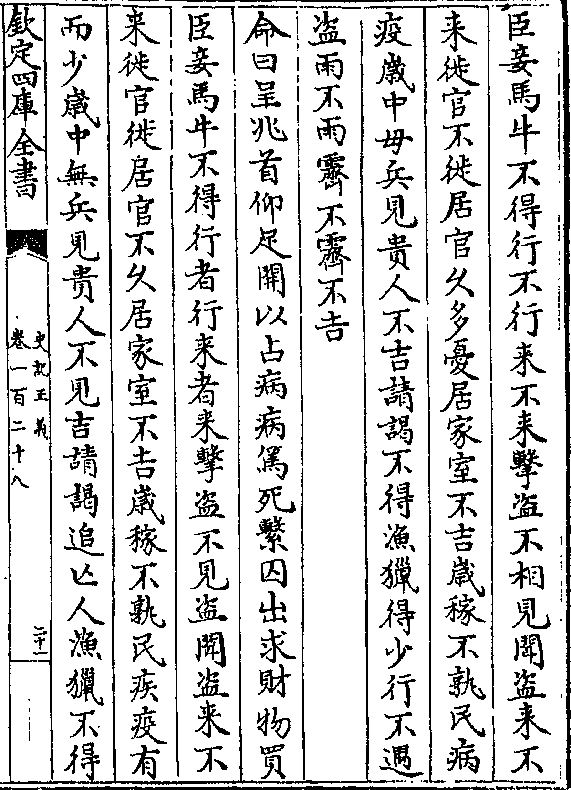 臣妾馬牛不得行不行来不来擊盜不相見聞盜来不
来徙官不徙居官久多憂居家室不吉嵗稼不孰民病
疫嵗中毋兵見貴人不吉請謁不得漁獵得少行不遇
盜雨不雨霽不霽不吉
命曰呈兆首仰足開以占病病篤死繫囚出求財物買
臣妾馬牛不得行者行来者来擊盜不見盜聞盜来不
来徙官徙居官不久居家室不吉嵗稼不孰民疾疫有
而少嵗中無兵見貴人不見吉請謁追亡人漁獵不得
欽定四庫全書
史記正義
卷一百二十八
二十一